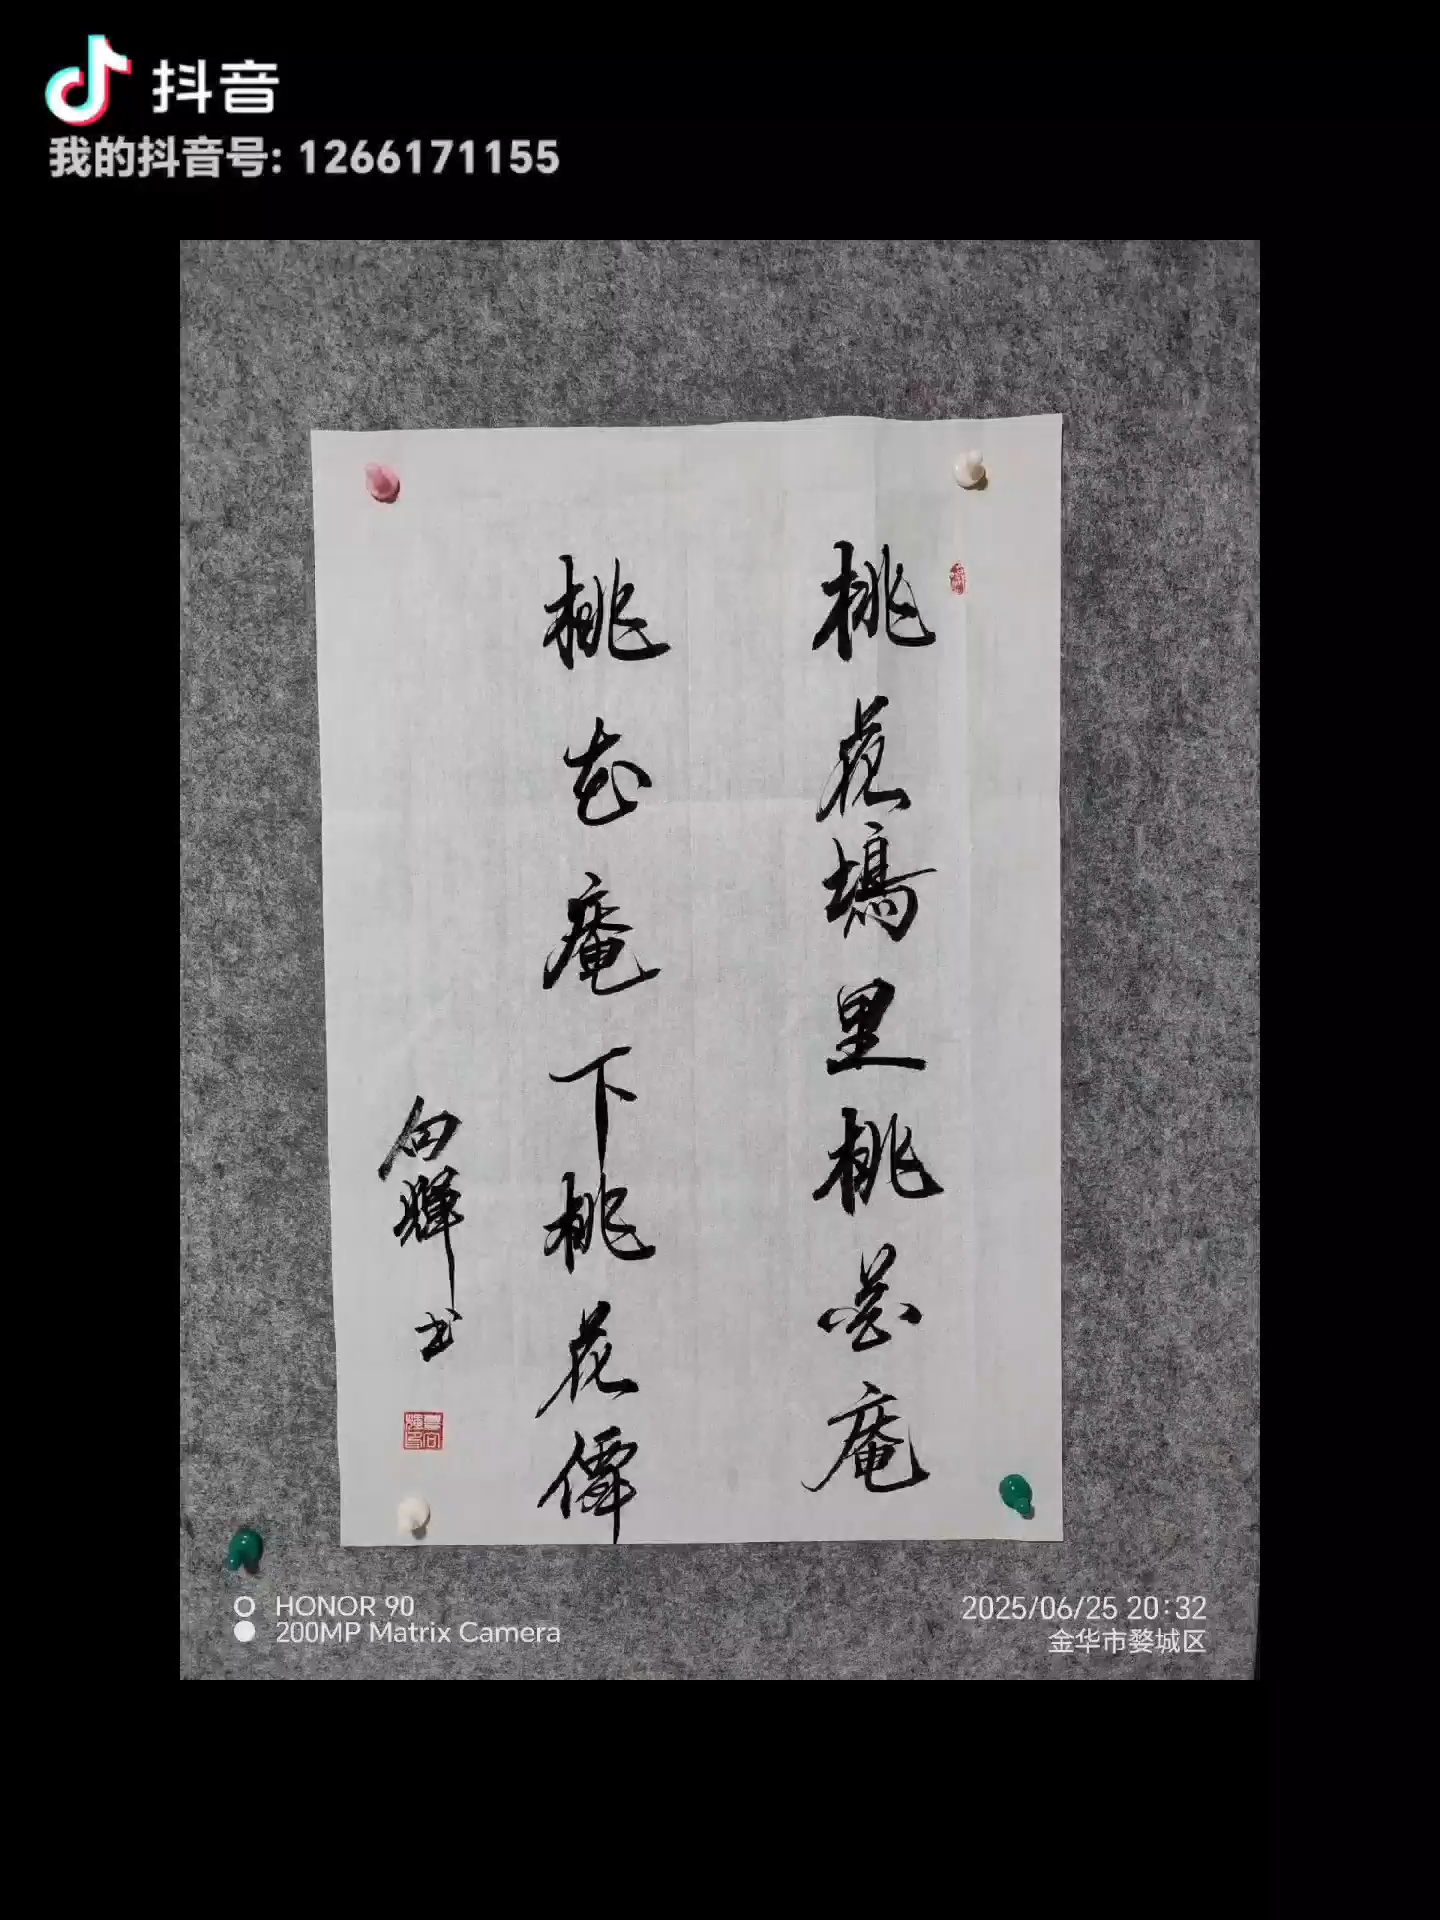 抖音
我的抖音号: 1266171155
桃花塢里桃花庵
桃花庵下桃花僊
向輝书
HONOR 90
200MP Matrix Camera
2025/06/25 20:32
金华市婺城区